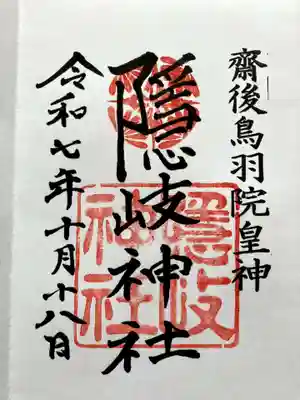 齋後鳥羽院皇神
隱岐神社
令和七年十月十八日
隱岐
神社